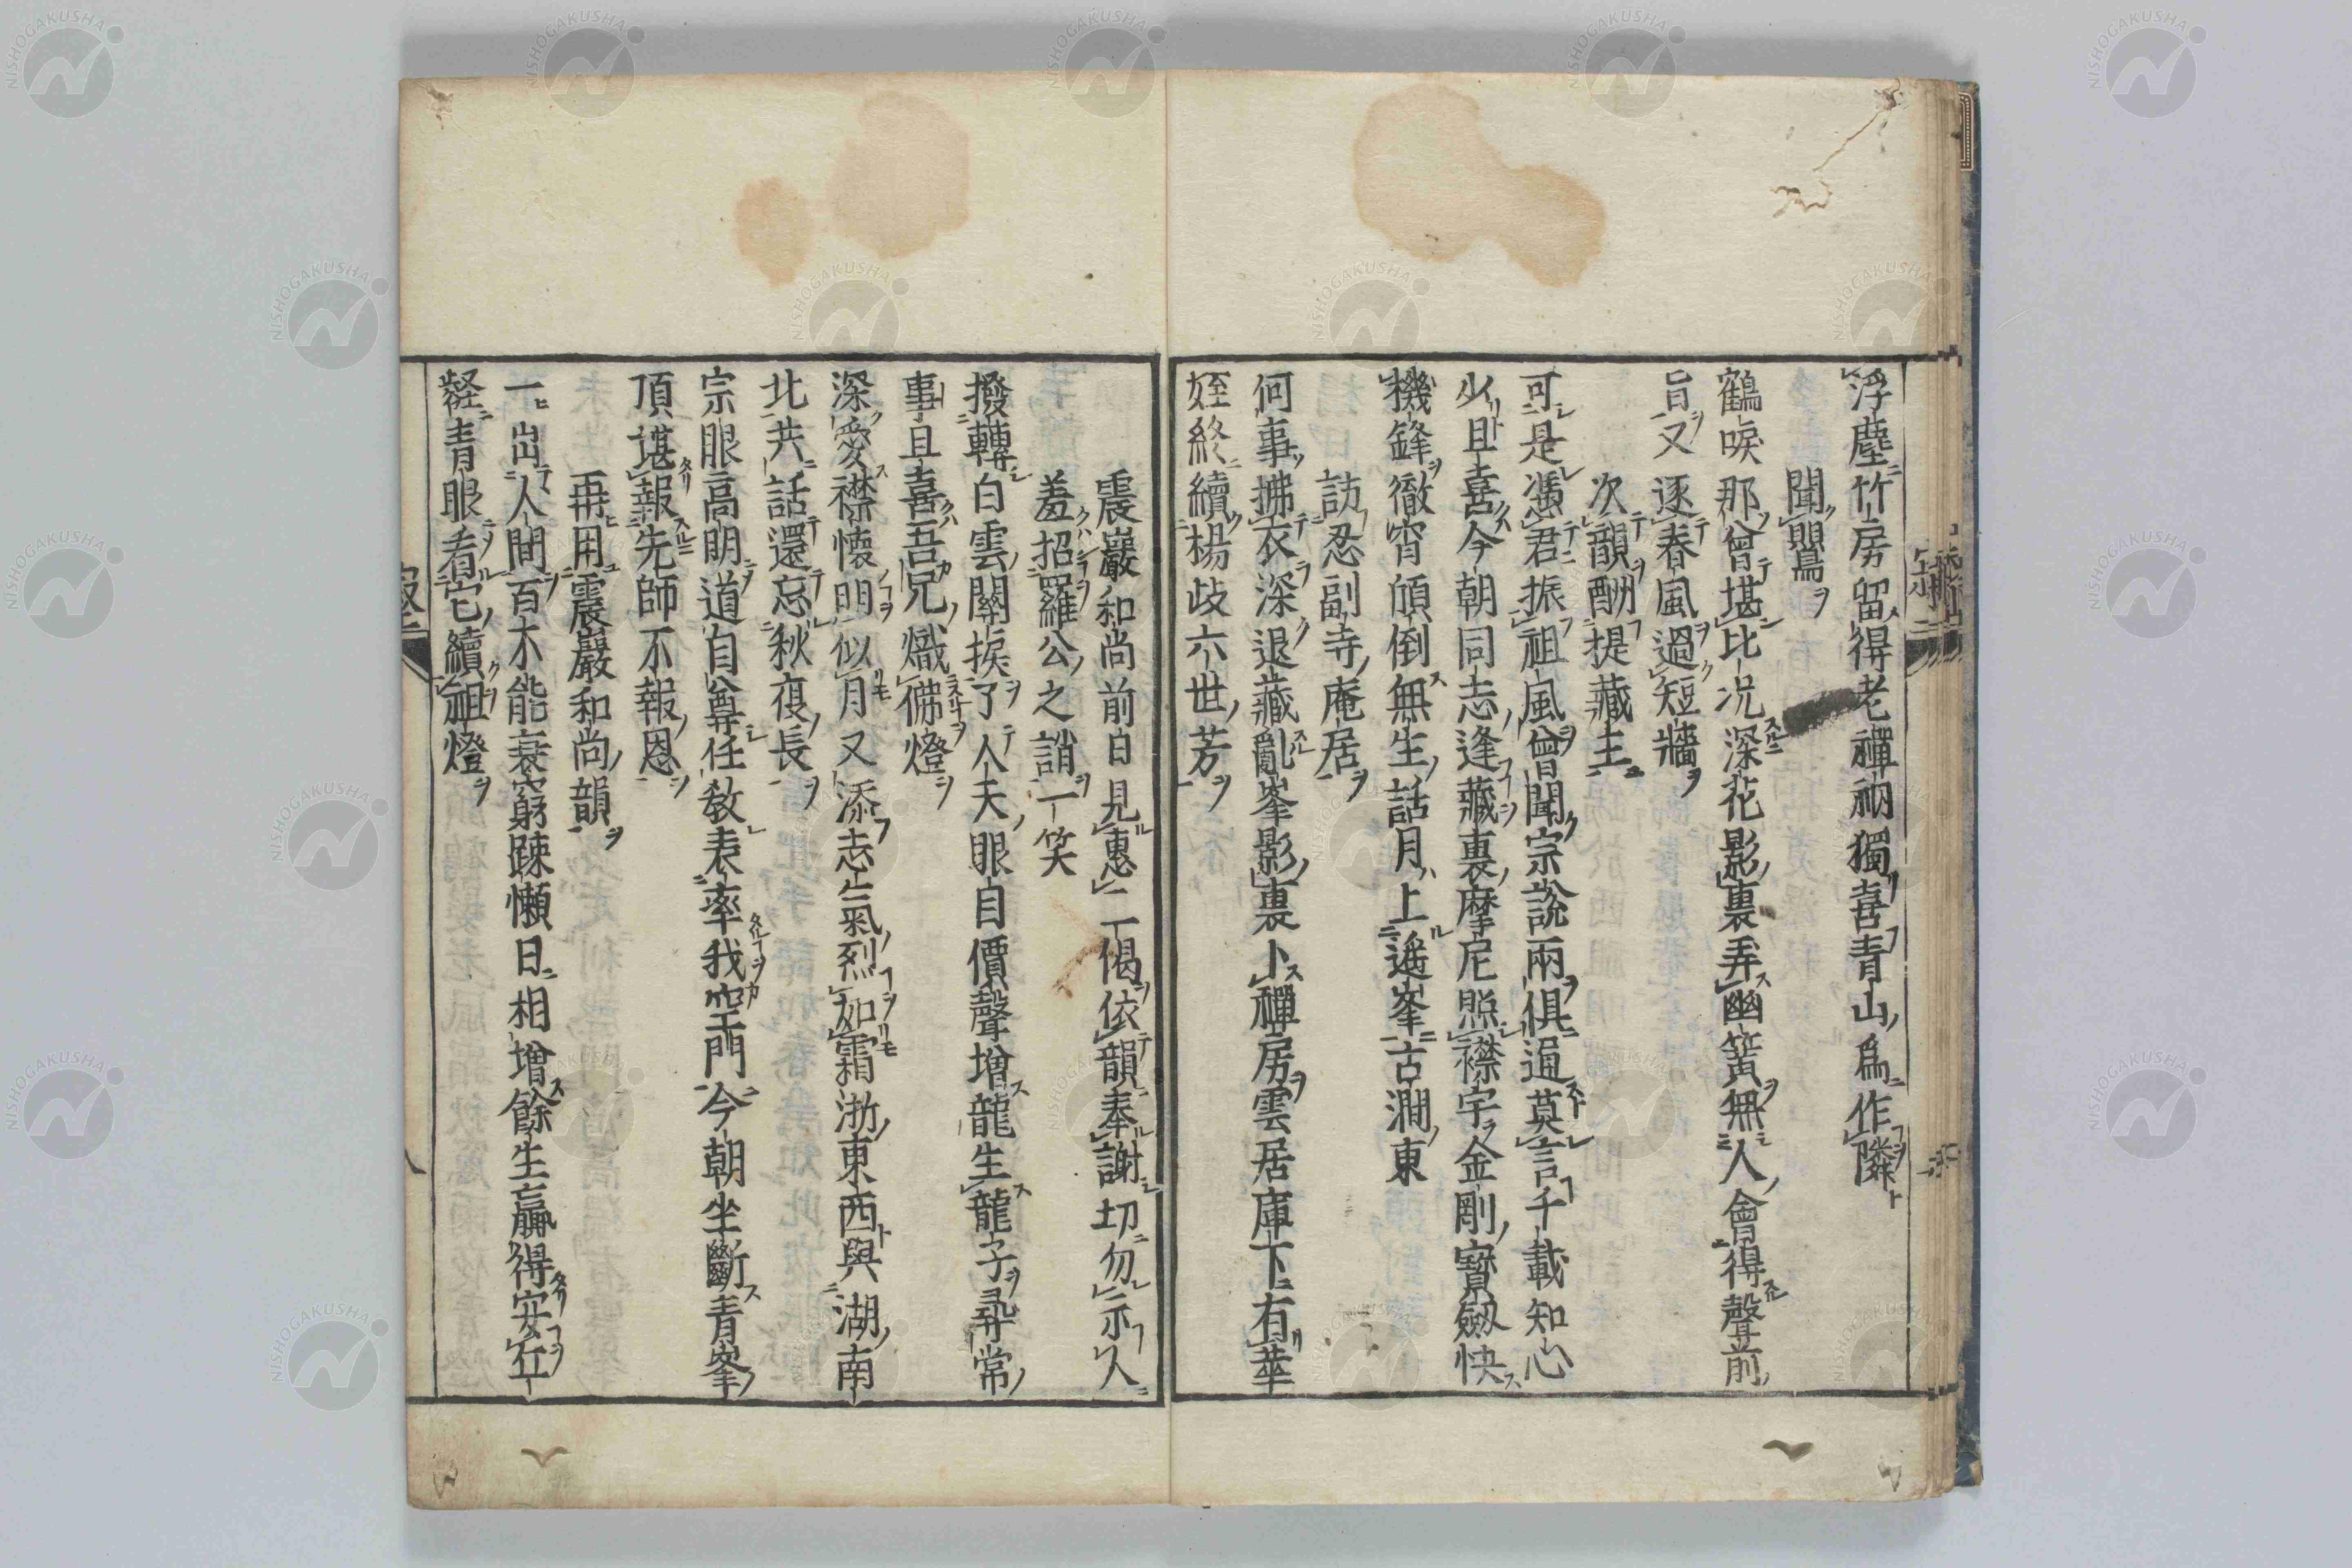 浮塵竹房留得老禪衲獨喜青山為作隣
聞鶯
鶴唳那曾堪比况深花影裏弄幽簧無人會得聲前
旨又逐春風過短牆
次韻酬提藏主
可是憑君振祖風曾聞宗說兩俱通莫言千載知心
少且喜今朝同志逢藏裏摩尼照襟宇金剛寶劔快
機鋒徹宵傾倒無生話月上遙峯古澗東
訪忍副寺庵居
何事拂衣深退藏亂峯影裏卜禪房雲居庫下有華
姪終續楊歧六世芳
震巖和尚前日見惠一偈依韻奉謝切勿示人
羞招羅公之誚一笑
撥轉白雲關捩了人天眼自價聲增龍生龍子尋常
事且喜吾兄熾佛燈
深愛襟懷明似月又添志氣烈如霜浙東西與湖南
北共話還忘秋夜長
宗眼高明道自尊任教表率我空門今朝坐斷青峯
頂堪報先師不報恩
再用震巖和尚韻
一出人間百不能衰窮踈懶日相增餘生贏得安在
青眼看它續祖燈